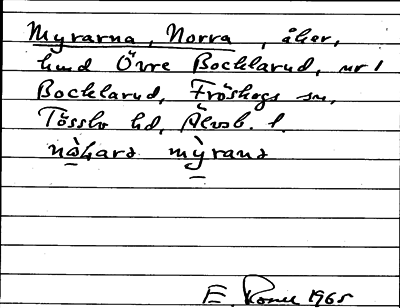 Myrarna, Norra, åker,
hmd Övre Bocklarud, nr 1
Bocklarud, Fröskogs sn,
Tössbo hd, Älvsb. l.
nò̱hara mỳ̱rana
E. 1965